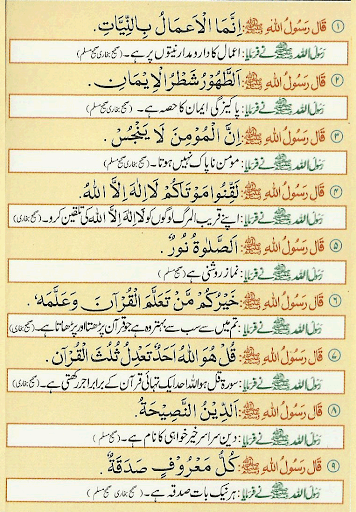 ۱ قَالَ رَسُولُ اللّٰهِ ﷺ: اِنَّمَا الْاَعْمَالُ بِالنِّيَّاتِ.
رسول اللہ ﷺ نے فرمایا: اعمال کا دارومدار نیتوں پر ہے۔ (صحیح بخاری صحیح مسلم)
۲ قَالَ رَسُولُ اللّٰهِ ﷺ: اَلطَّهُوْرُ شَطْرُ الْاِيْمَانِ.
رسول اللہ ﷺ نے فرمایا: پاکیزگی ایمان کا حصہ ہے۔ (صحیح مسلم)
۳ قَالَ رَسُولُ اللّٰهِ ﷺ: اِنَّ الْمُؤْمِنَ لَا يَنْجُسُ.
رسول اللہ ﷺ نے فرمایا: مومن ناپاک نہیں ہوتا۔ (صحیح بخاری صحیح مسلم)
۴ قَالَ رَسُولُ اللّٰهِ ﷺ: لَقِّنُوْا مَوْتَاكُمْ لَا اِلٰهَ اِلَّا اللّٰهُ.
رسول اللہ ﷺ نے فرمایا: اپنے قریب المرگ لوگوں کو لَا اِلٰهَ اِلَّا اللّٰهُ کی تلقین کرو۔ (صحیح بخاری)
۵ قَالَ رَسُولُ اللّٰهِ ﷺ: اَلصَّلٰوةُ نُوْرٌ.
رسول اللہ ﷺ نے فرمایا: نماز روشنی ہے (صحیح مسلم)
۶ قَالَ رَسُولُ اللّٰهِ ﷺ: خَيْرُكُمْ مَّنْ تَعَلَّمَ الْقُرْآنَ وَعَلَّمَهٗ.
رسول اللہ ﷺ نے فرمایا: تم میں سے سب سے بہتر وہ ہے جو قرآن پڑھتا اور پڑھاتا ہے۔ (صحیح بخاری)
۷ قَالَ رَسُولُ اللّٰهِ ﷺ: قُلْ هُوَ اللّٰهُ اَحَدٌ تَعْدِلُ ثُلُثَ الْقُرْآنِ.
رسول اللہ ﷺ نے فرمایا: سورۃ قل ہو اللہ احد ایک تہائی قرآن کے برابر اجر رکھتی ہے۔ (صحیح بخاری)
۸ قَالَ رَسُولُ اللّٰهِ ﷺ: اَلدِّيْنُ النَّصِيْحَةُ.
رسول اللہ ﷺ نے فرمایا: دین سراسر خیر خواہی کا نام ہے۔ (صحیح مسلم)
۹ قَالَ رَسُولُ اللّٰهِ ﷺ: كُلُّ مَعْرُوْفٍ صَدَقَةٌ.
رسول اللہ ﷺ نے فرمایا: ہر نیک بات صدقہ ہے۔ (صحیح بخاری صحیح مسلم)